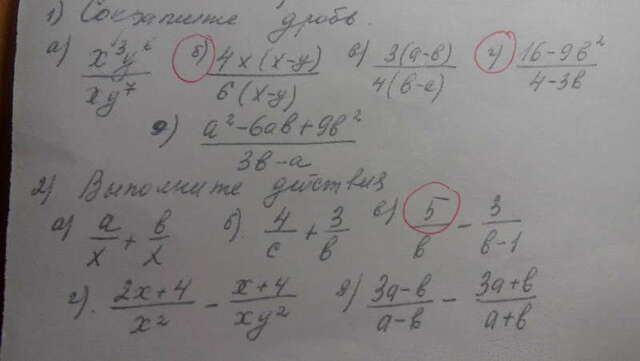 1) Сократите дробь.
а) x³y⁶/xy⁷ б) 4x(x-y)/6(x-y) в) 3(a-b)/4(b-a) г) 16-9b²/4-3b
д) a²-6ab+9b²/3b-a
2) Выполните действия
а) a/x + b/x б) 4/c + 3/b в) 5/b - 3/b-1
г) 2x+4/x² - x+4/xy² д) 3a-b/a-b - 3a+b/a+b